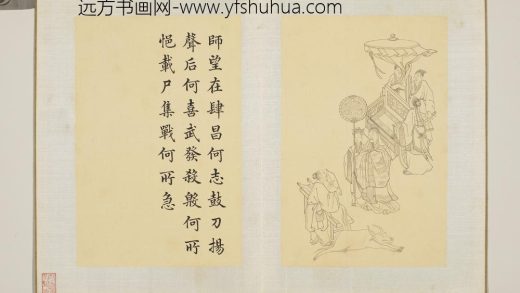 远方书画网-www.yfshuhua.com
師望在肆昌何志鼓刀揚
聲后何喜武發殺殷何所
悒載尸集戰何所急